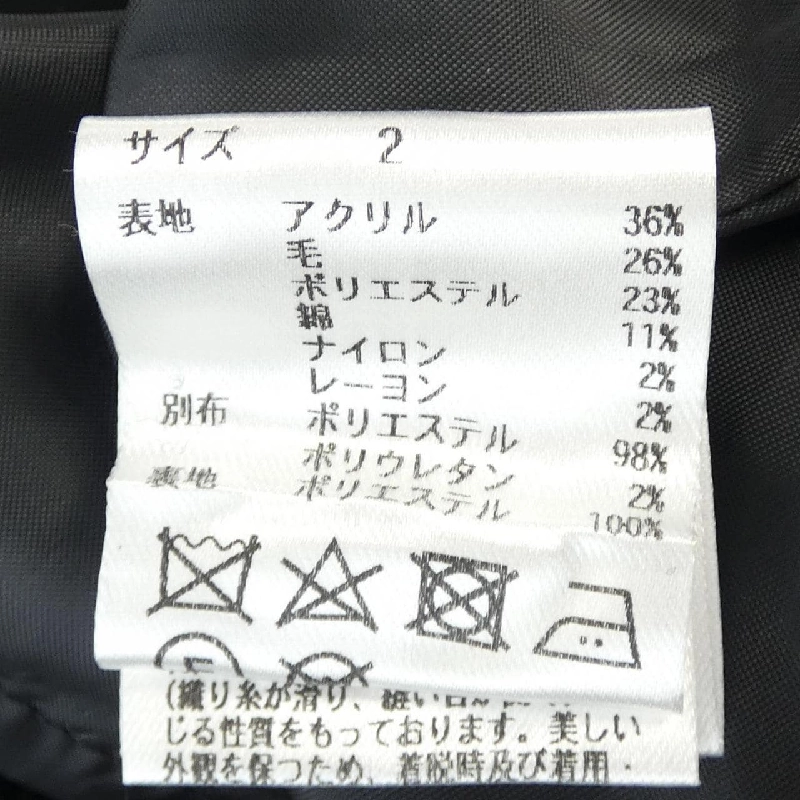 サイズ 2
表地 アクリル 36%
毛 26%
ポリエステル 23%
綿 11%
ナイロン 2%
レーヨン 2%
別布 ポリエステル 98%
ポリウレタン 2%
裏地 ポリエステル 100%
(織り糸が滑り、縫い目が
じる性質をもっております。美しい
外観を保つため、着脱時及び着用・